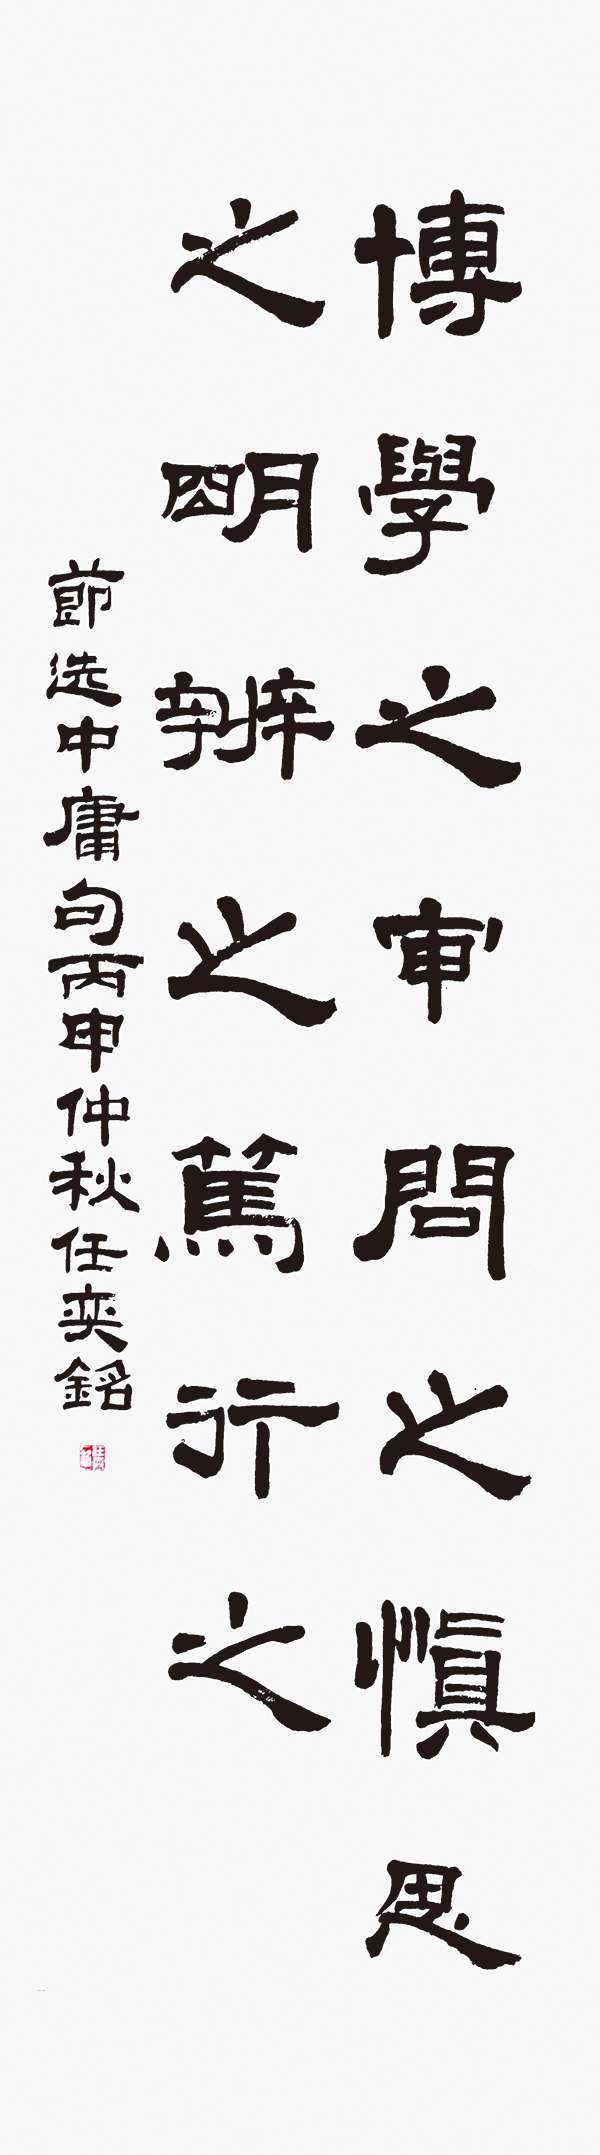 博學之审問之慎思
之明辨之篤行之
節选中庸句丙申仲秋任奕銘